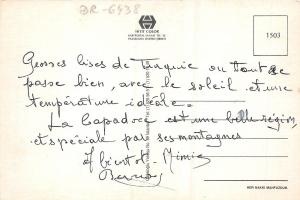 BR-6438
HITIT COLOR
1503
Grosses bises de Turquie ou tout se
passe bien, avec le soleil et une
température idéale.
La Capadoce est une belle région,
et spéciale par ses montagnes
A bientôt - Mimie
HER HAKKI MAHFUZDUR.